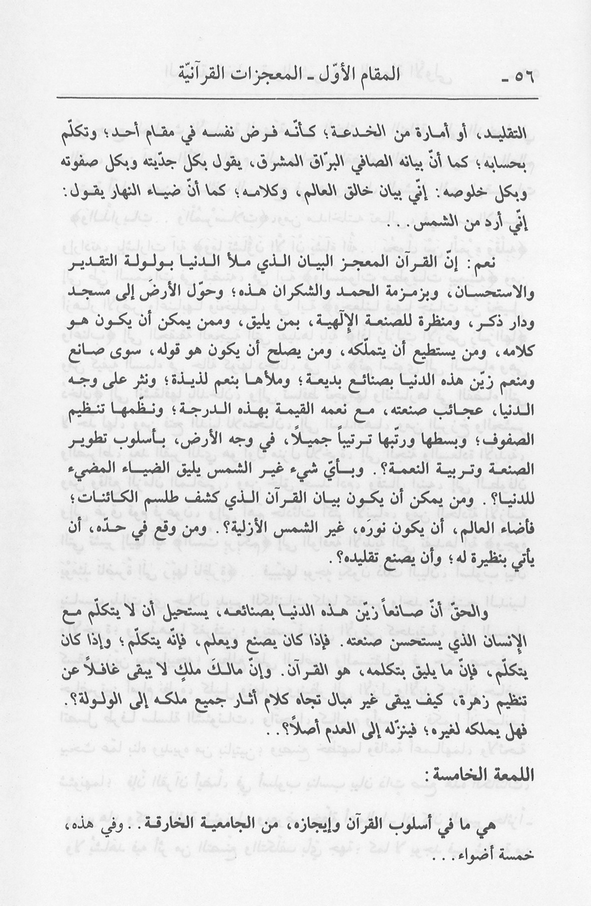 ٥٦ ـ المقام الأوّل ـ المعجزات القرآنيّة
التقليد، أو أمارة من الخدعة؛ كأنّه فرض نفسه في مقام أحد؛ وتكلّم
بحسابه؛ كما أنّ بيانه الصافي البرّاق المشرق، يقول بكل جدّيته وبكل صفوته
وبكل خلوصه: إنّي بيان خالق العالم، وكلامه؛ كما أنّ ضياء النهار يقول:
إنّي أرد من الشمس...
نعم: إنّ القرآن المعجز البيان الذي ملأ الدنيا بولولة التقدير
والاستحسان، وبزمزمة الحمد والشكران هذه؛ وحوّل الأرضَ إلى مسجد
ودار ذكر، ومنظرة للصنعة الإلٰهية، بمن يليق، وممن يمكن أن يكون هو
كلامه، ومن يستطيع أن يتملّكه، ومن يصلح أن يكون هو قوله، سوى صانع
ومنعم زيّن هذه الدنيا بصنائع بديعة؛ وملأها بنعم لذيذة؛ ونثر على وجه
الدنيا، عجائب صنعته، مع نعمه القيمة بهذه الدرجة؛ ونظّمها تنظيم
الصفوف؛ وبسطها ورتبها ترتيباً جميلاً، في وجه الأرض، بأسلوب تطوير
الصنعة وتربية النعمة؟. وبأي شيء غير الشمس يليق الضياء المضيء
للدنيا؟. ومن يمكن أن يكون بيان القرآن الذي كشف طلسم الكائنات؛
فأضاء العالم، أن يكون نورَه، غير الشمس الأزلية؟. ومن وقع في حدّه، أن
يأتي بنظيرة له؛ وأن يصنع تقليده؟.
والحقّ أنّ صانعاً زيّن هذه الدنيا بصنائعه، يستحيل أن لا يتكلّم مع
الإنسان الذي يستحسن صنعته. فإذا كان يصنع ويعلم، فإنّه يتكلّم؛ وإذا كان
يتكلّم، فإنّ ما يليق بتكلمه، هو القرآن. وإنّ مالكَ ملكٍ لا يبقى غافلاً عن
تنظيم زهرة، كيف يبقى غير مبال تجاه كلام أثار جميع ملكه إلى الولولة؟.
فهل يملكه لغيره؛ فينزّله إلى العدم أصلاً؟..
اللمعة الخامسة:
هي ما في أسلوب القرآن وإيجازه، من الجامعية الخارقة.. وفي هذه،
خمسة أضواء...